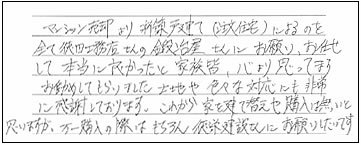 マンション売却より新築戸建て(注文住宅)によるのを
全て依田工務店さんの さんにお願い、お任せ
して本当によかったと家族皆、心より思ってます
お勧めしてもらいました土地や色々な対応にも非常
に感謝しております。これから家を建て替えや購入は無いと
思いますが、万一購入の際はもちろん 建設さんにお願いしたいです